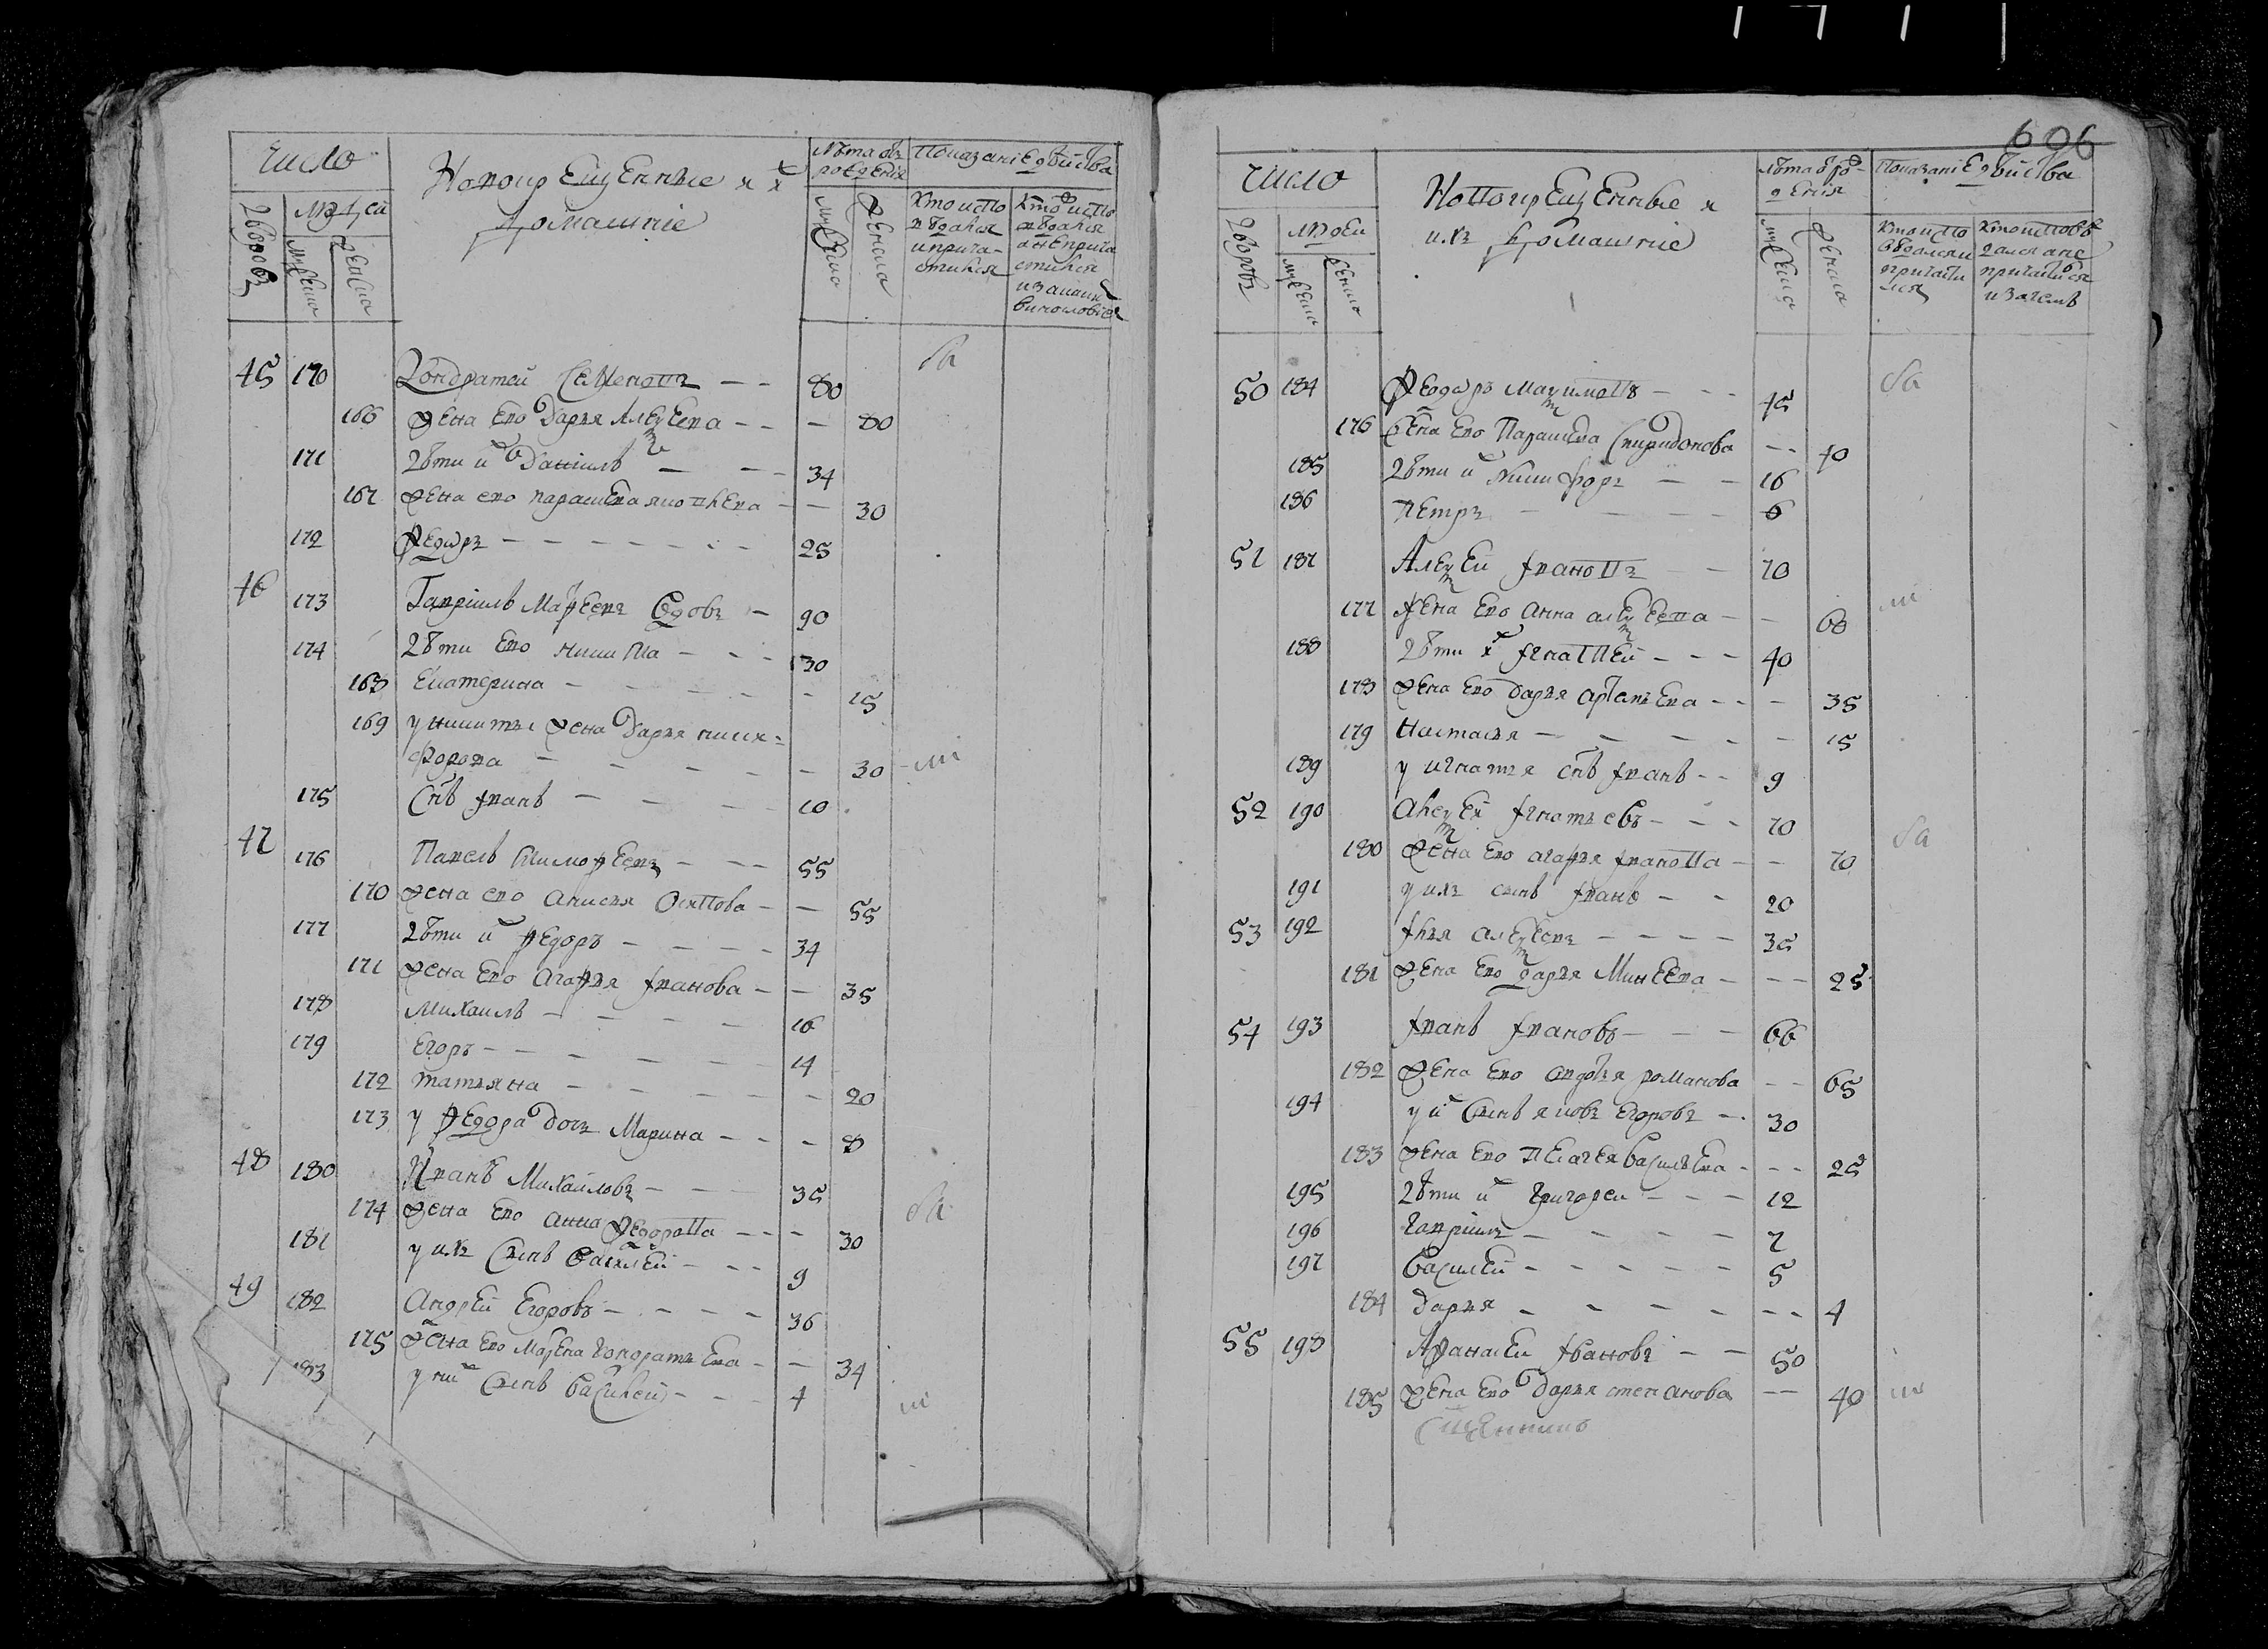 Число
Новокрещенные и их
домашнїе
Лѣта отъ
рожденїя
Показанїе действа
дворовъ
людей
мужеска
женска
мужеска
женска
Кто испо
вѣдался
и прича-
стился
Кто испо
вѣдался
а не прича
стился
и за каким
винословїем
45 170 Кондратей Семеновъ - - 80
166 жена ево Дарья Алеѯеева - - - 80
171 дѣти их Данїилъ - - - 34
167 жена ево параскева яковлева - - 30
172 Ѳедоръ - - - - - - - 25
46 173 Гаврїилъ Марѳеевъ Седовъ - 90
174 дѣти ево никита - - - 30
168 Екатерина - - - - - - 15
169 у никиты жена Дарья ники-
форова - - - - - 30
175 Снъ Иванъ - - - - 10
47 176 Павелъ тимоѳеевъ - - - 55
170 жена ево анисья Осипова - - 55
177 дѣти их Ѳедоръ - - - - 34
171 жена ево агаѳья Иванова - - 35
178 михаилъ - - - - - 16
179 Егоръ - - - - - - 14
172 татьяна - - - - - 20
173 у Ѳедора дочь Марина - - - 8
48 180 Иванъ Михайловъ - - - 35
174 жена ево анна Ѳедорова - - - 30
181 у ихъ сынъ василей - - - 9
49 182 Андрей Егоровъ - - - - 36
175 жена ево марѳа кондратьева - - 34
183 у них сынъ василей - - - 4
606
Число
Новокрещенные и
ихъ домашнїе
лѣта от ро-
жденїя
Показанїе действа
дворовъ
людей
мужеска
женска
мужеска
женска
Кто испо
вѣдался и
причасти
лся
Кто исповѣ
дался а не
причастился
и зачемъ
50 184 Ѳеодоръ Маѯимовъ - - - 45
176 жена ево Парасковья Спиридонова - - 40
185 дѣти их Никифоръ - - 16
186 Петръ - - - - - 6
51 187 Алеѯей Ивановъ - - 70
177 жена ево анна алеѯеева - - 60
188 дѣти их Игнатей - - - 40
178 жена ево Дарья артемьева - - - 35
179 Настасья - - - - - - 15
189 у игнатья снъ Иванъ - - 9
52 190 алеѯей Игнатьевъ - - - 70
180 жена ево агаѳья Иванова - - 70
191 у ихъ сынъ Иванъ - - 20
53 192 Илья алеѯеевъ - - - - 35
181 жена ево дарья Минеева - - - 25
54 193 Иванъ Ивановъ - - - 66
182 жена ево авдотья романова - - 65
194 у их сынъ яковъ Егоровъ - - 30
183 жена ево пелагея васильева - - - 25
195 дѣти их григорей - - - 12
196 гаврїилъ - - - - - 7
197 василей - - - - - 5
184 дарья - - - - - - 4
55 198 Аѳанасей Ивановъ - - 50
185 жена ево Дарья степанова - - 40